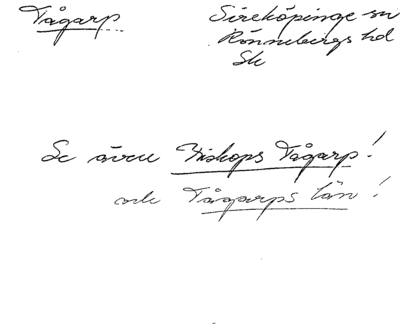 Tågarp
Sireköpinge sn
Rönnebergs hd
Sk
Se även Biskops Tågarp!
och Tågarps län!